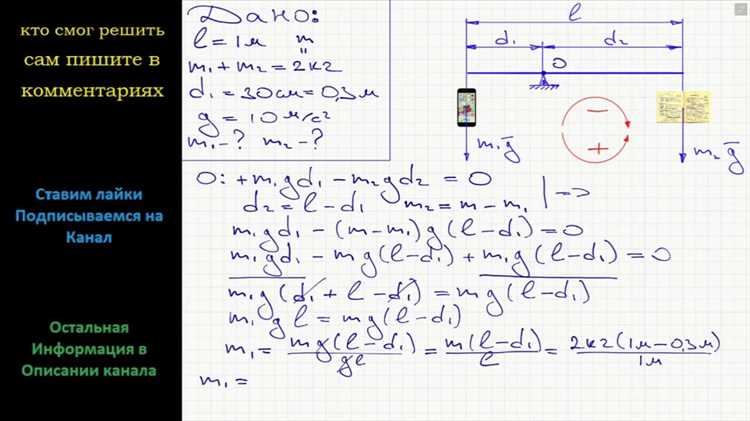 кто смог решить
сам пишите в
комментариях
Ставим лайки
Подписываемся на
Канал
Остальная
Информация в
Описании канала
Дано:
l = 1м m
m₁ + m₂ = 2кг
d₁ = 30см = 0,3м
g = 10 м/с²
m₁ - ? m₂ - ?
l
d₁ d₂
O
m₁g̅
m₂g̅
−
+
O: +m₁gd₁ − m₂gd₂ = 0
d₂ = l − d₁ m₂ = m − m₁ | =>
m₁gd₁ − (m − m₁)g(l − d₁) = 0
m₁gd₁ − mg(l − d₁) + m₁g(l − d₁) = 0
m₁g(d₁ + l − d₁) = mg(l − d₁)
m₁gl = mg(l − d₁)
m₁ = mg(l − d₁)/gl = m(l − d₁)/l = 2кг(1м − 0,3м)/1м
m₁ =